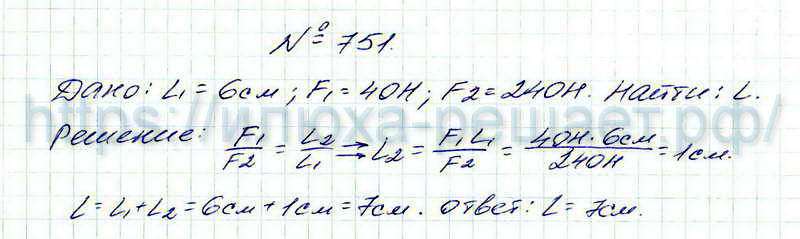 № 751.
Дано: L₁ = 6см; F₁ = 40Н; F₂ = 240Н. Найти: L.
https://илюха-решает.рф/
Решение: F₁/F₂ = L₂/L₁ → L₂ = F₁L₁/F₂ = 40Н·6см/240Н = 1см.
L = L₁ + L₂ = 6см + 1см = 7см. Ответ: L = 7см.